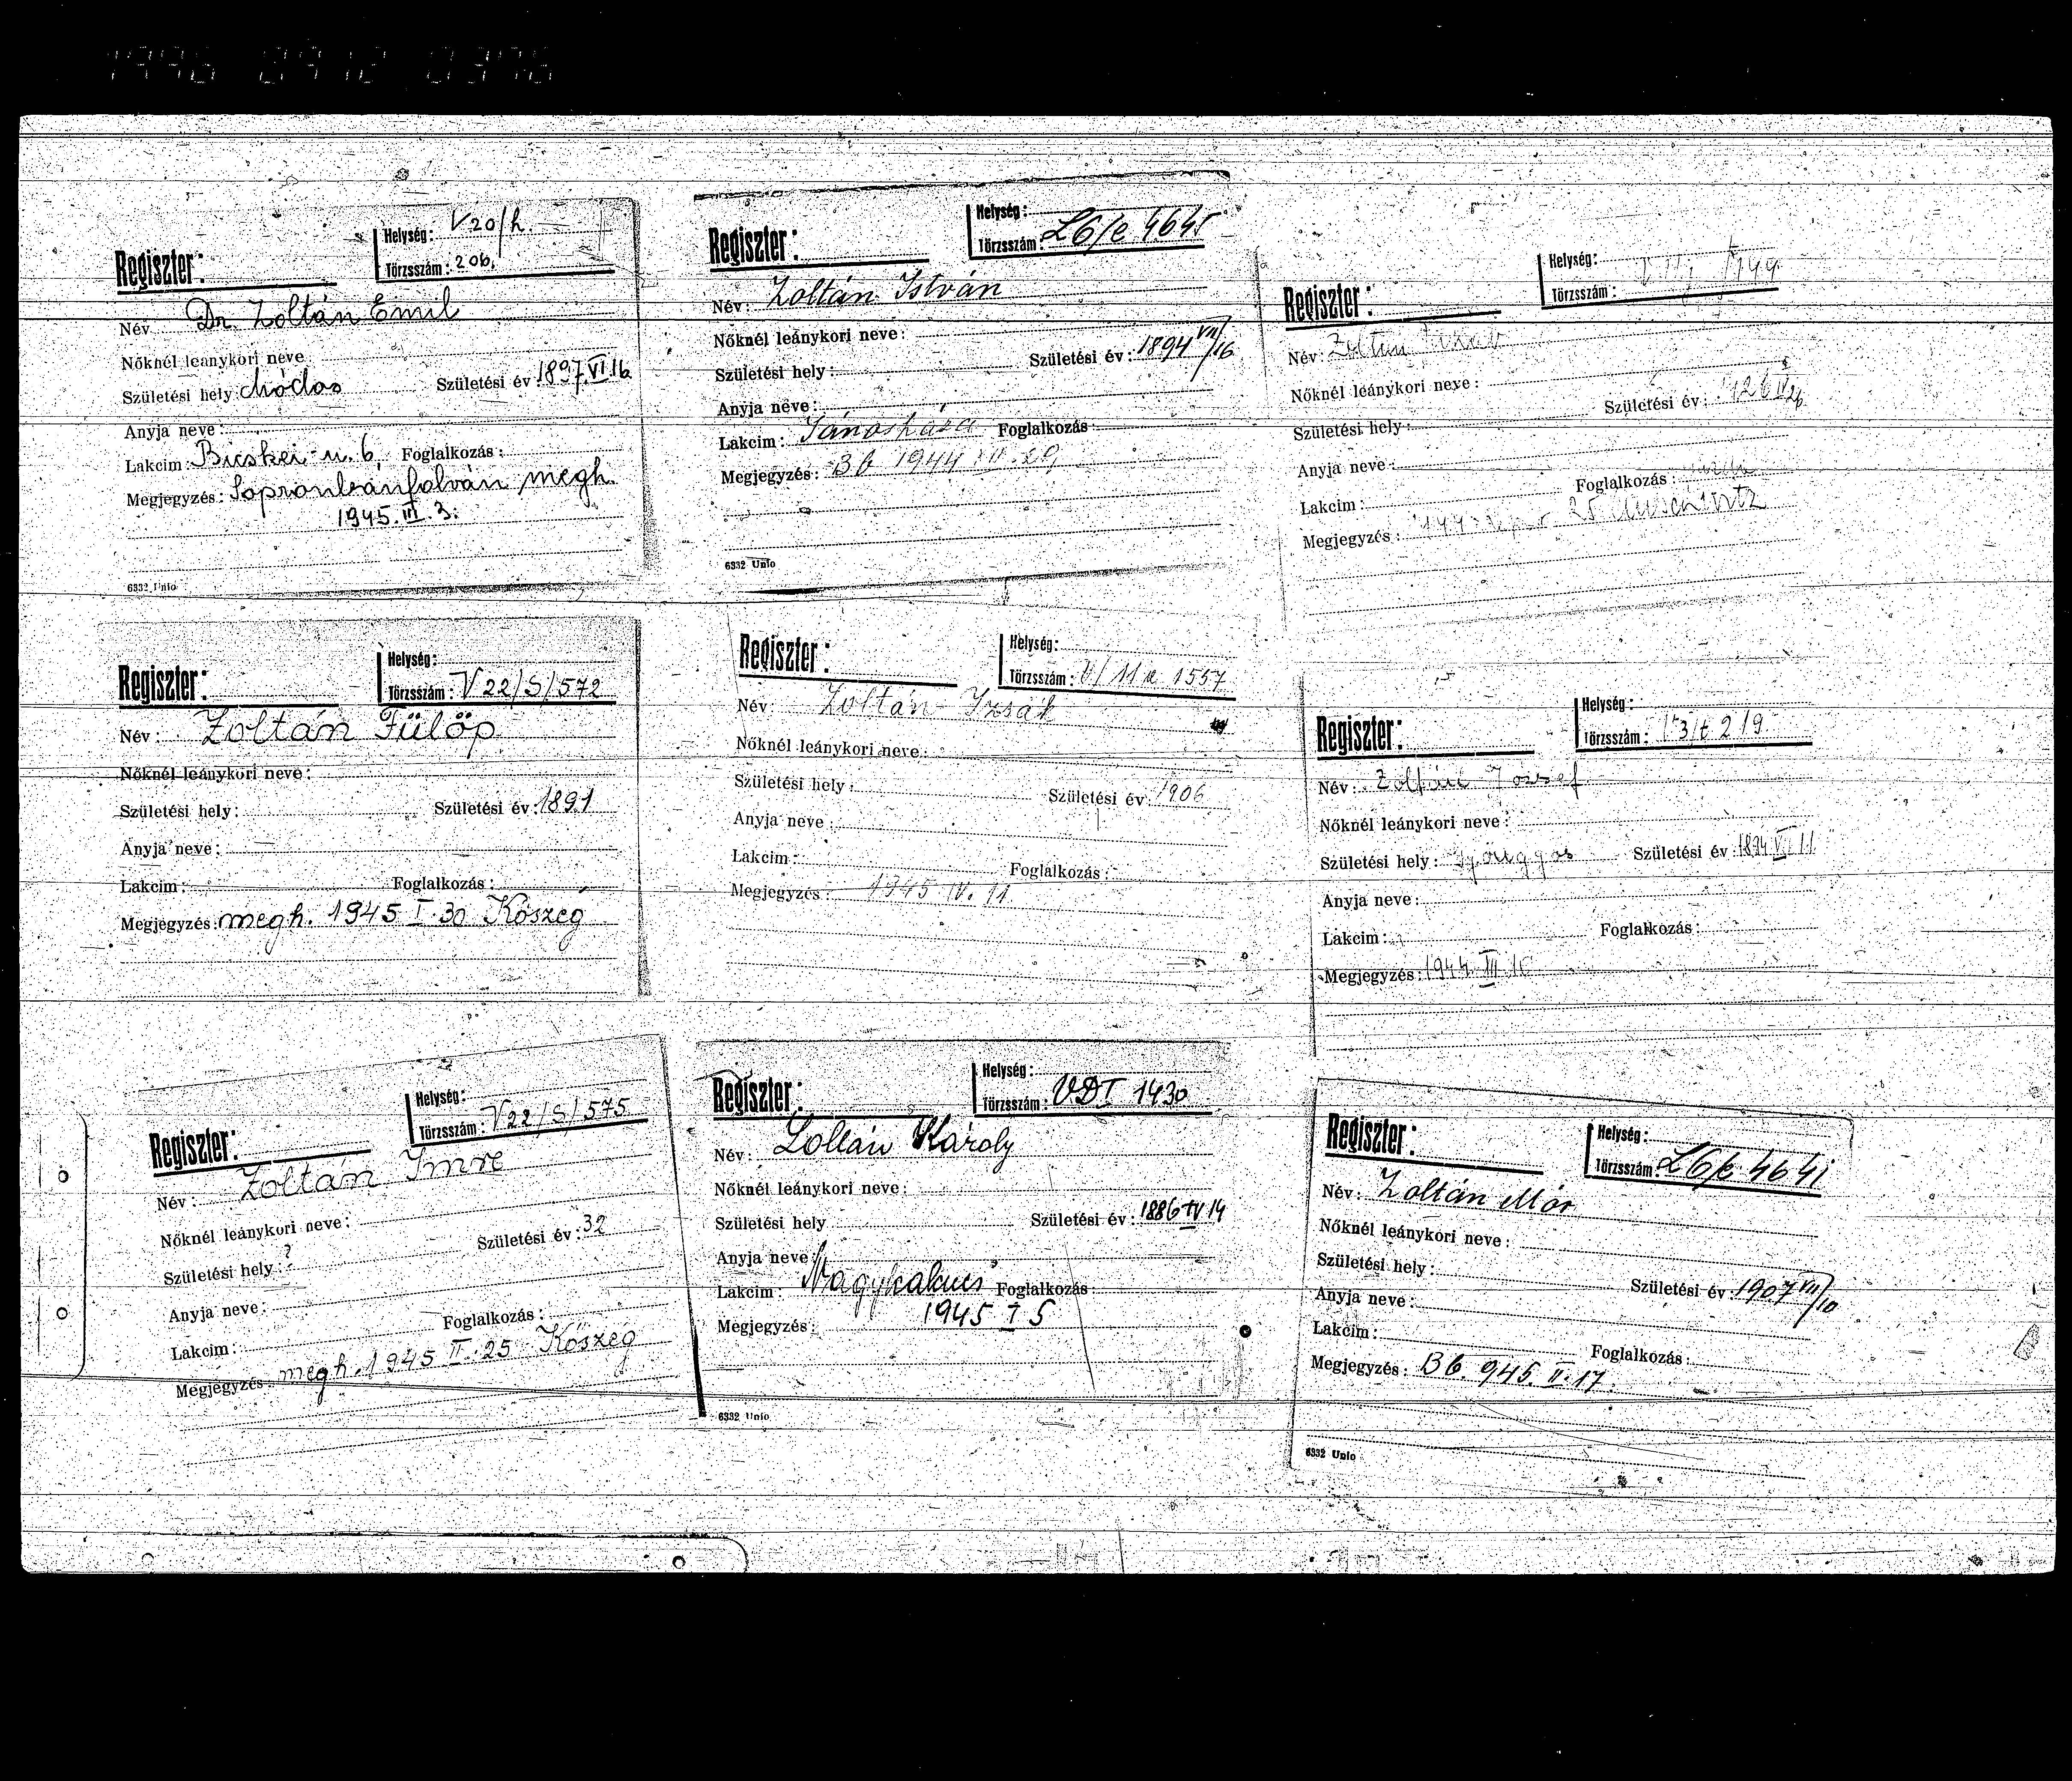 1996 0912 0376
Helység: V20/h
Regiszter: Törzsszám: 206.
Név Dr. Zoltán Emil
Nőknél leánykori neve
Születési hely: Módos Születési év: 1897. VI 16
Anyja neve:
Lakcim: Bicskei u. 6. Foglalkozás:
Megjegyzés: Sopronbánfalván megh.
1945. III. 3.
6332 Unio
Helység:
Regiszter: Törzsszám: L6/e 4645
Név: Zoltán István
Nőknél leánykori neve:
Születési hely: Születési év: 1894 VII/16
Anyja neve:
Lakcim: Jánosháza Foglalkozás:
Megjegyzés: Bb 1944 XII. 29
6332 Unio
Helység:
Regiszter: Törzsszám:
Név: Zoltán
Nőknél leánykori neve:
Születési hely: Születési év:
Anyja neve:
Lakcim: Foglalkozás:
Megjegyzés: 25 Auschwitz
Helység:
Regiszter: Törzsszám: V22/S/572
Név: Zoltán Fülöp
Nőknél leánykori neve:
Születési hely: Születési év: 1891
Anyja neve:
Lakcim: Foglalkozás:
Megjegyzés: megh. 1945 I. 30 Kőszeg
Helység:
Regiszter: Törzsszám: V/11a 1557
Név: Zoltán Izsák
Nőknél leánykori neve:
Születési hely: Születési év: 1906
Anyja neve:
Lakcim: Foglalkozás:
Megjegyzés: 1945 IV. 11.
Helység:
Regiszter: Törzsszám: 219
Név: Zoltán József
Nőknél leánykori neve:
Születési hely: Születési év: 1894 VI 11
Anyja neve:
Lakcim: Foglalkozás:
Megjegyzés: 1944 III
Helység:
Regiszter: Törzsszám: V22/S/575
Név: Zoltán Imre
Nőknél leánykori neve:
Születési hely: ? Születési év: 32
Anyja neve:
Lakcim: Foglalkozás:
Megjegyzés: megh. 1945 II. 25 Kőszeg
Helység:
Regiszter: Törzsszám: VDT 1430
Név: Zoltán Károly
Nőknél leánykori neve:
Születési hely Születési év: 1886 IV 14
Anyja neve:
Lakcim: Foglalkozás:
Megjegyzés: 1945 I 5
6332 Unio
Helység:
Regiszter: Törzsszám: L6/e 4641
Név: Zoltán Mór
Nőknél leánykori neve:
Születési hely: Születési év: 1907 VII/10
Anyja neve:
Lakcim: Foglalkozás:
Megjegyzés: Bb. 945. II. 17.
6332 Unio